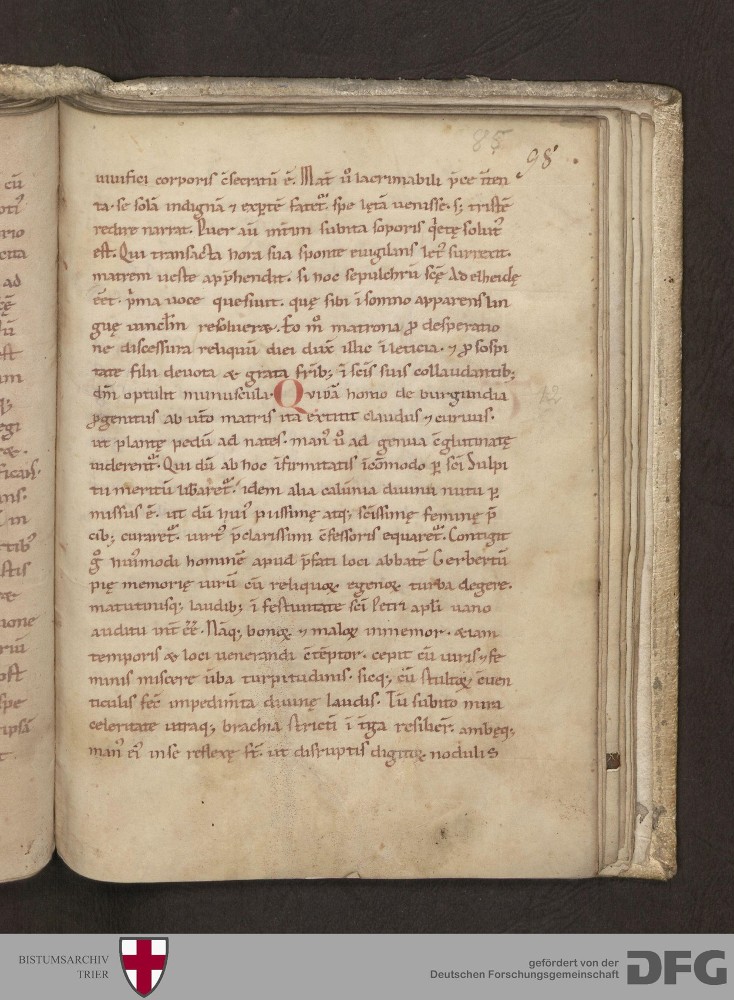 85
98
uiuifici corporis c̄secratū ē. Mat̄ ū lacrimabili p̄ce īten
ta. se solā indignā ⁊ exp̱tē fatet᷑. spe lętā uenisse. s; tristē
redire narrat. Puer aū int̄im subita soporis q̇etę soluit᷑
est. Qui transacta hora sua sponte euigilans let᷒ surrexit.
matrem ueste app̱hendit. si hoc sepulchrū scę̄ Adelheidę
eēt. p̓ma uoce quesiuit. quę sibi ī somno apparens lin
guę uinc̄lm resolueræ. Eo m̊ matrona ꝓ desperatio
ne discessura reliquū diei duxͭ illic ī leticia. ⁊ ꝓ sospi
tate filii deuota & grata fr̄ib; ī sc̄is suis collaudantib;
dm̄i optulit munuscula. Quidā homo de burgundia
ꝓgenitus ab utō matris ita extitit claudus ⁊ curuus.
ut plantę pedū ad nates. man᷒ ū ad genua c̄glutinatę
uiderent᷑. Qui dū ab hoc īfirmitatis īcōmodo p̱ sc̄i Sulpi
tii meritū lib̄aret᷑. idem alia calūnia diuinu nutu p̱
missus ē. ut dū hui᷒ piissimę atq; sc̄issimę feminę p̄
cib; curaret᷑. uirt᷒ p̄clarissimi c̄fessoris equaret᷑. Contigit
g̊ hui᷒modi hominē apud p̄fati loci abbatē Gerbertū
pię memorię uirū cū reliquoꝝ egenoꝝ turba degere.
matutinisq; laudib; ī festiuitate sc̄i Petri apl̄i uano
auditu int̄ eē̄. Nāq; bonoꝝ ⁊ maloꝝ inmemor. &iam
temporis & loci uenerandi c̄tēptor. cepit cū uiris ⁊ fe
minis miscere ūba turpitudinis. sicq; cū stultoꝝ c̄uen
ticulis fec̄ impedim̄ta diuinę laudis. Tū subito mira
celeritate utraq; brachia stricti ī t̄ga resilier̄. ambęq;
man᷒ ei᷒ in se reflexę s̄t. ut disruptis digitoꝝ nodulis
BISTUMSARCHIV
TRIER
gefördert von der
Deutschen Forschungsgemeinschaft
DFG